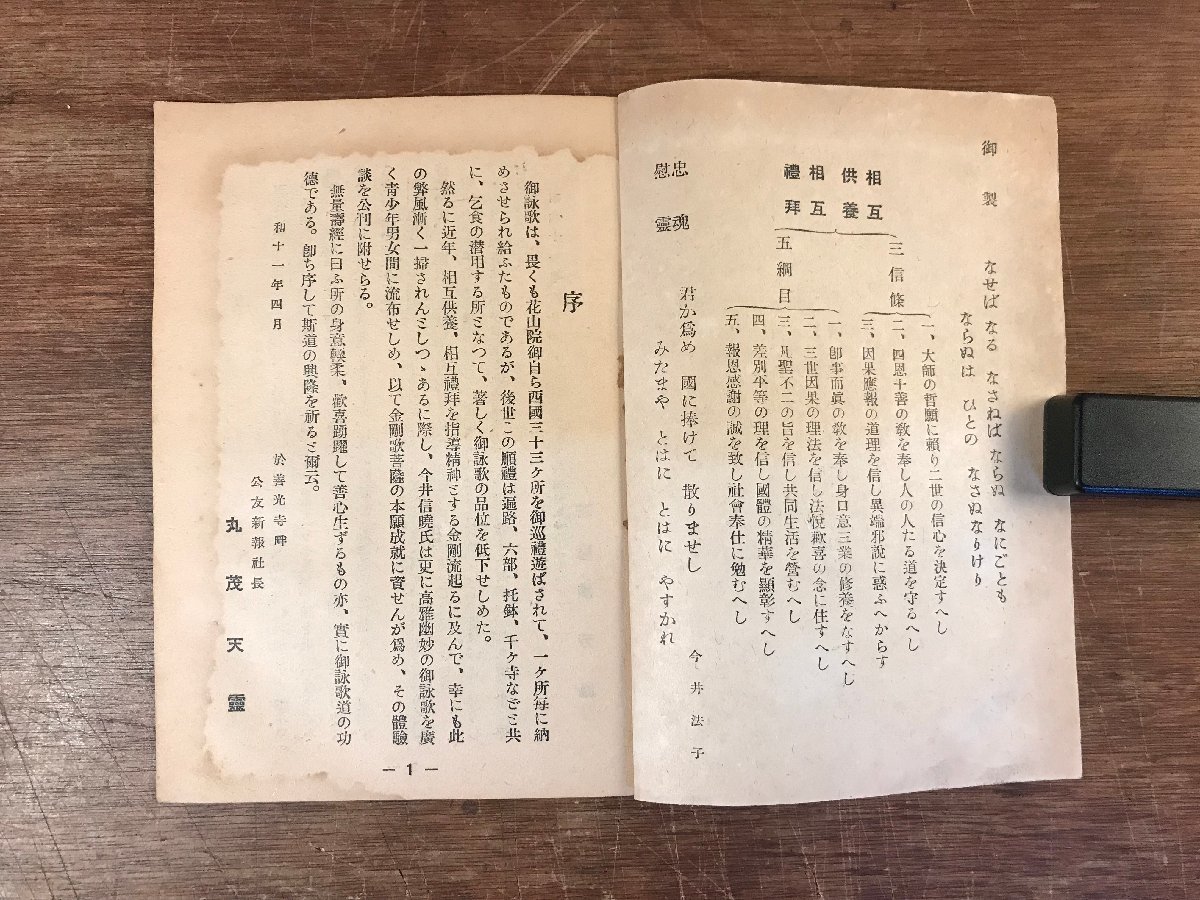 御製
なせば なる なさねば ならぬ なにごとも
ならぬは ひとの なさぬなりけり
相互供養
相互禮拜
三信條
一、大師の誓願に賴り二世の信心を決定すへし
二、四恩十善の敎を奉し人の人たる道を守るへし
三、因果應報の道理を信し異端邪說に惑ふへからす
五綱目
一、卽事而眞の敎を奉し身口意三業の修養をなすへし
二、三世因果の理法を信し法悅歡喜の念に住すへし
三、凡聖不二の旨を信し共同生活を營むへし
四、差別平等の理を信し國體の精華を顯彰すへし
五、報恩感謝の誠を致し社會奉仕に勉むへし
忠魂慰靈
今井法子
君か爲め 國に捧けて 散りませし
みたまや とはに とはに やすかれ
序
御詠歌は、畏くも花山院御自ら西國三十三ヶ所を御巡禮遊ばされて、一ヶ所每に納
めさせられ給ふたものであるが、後世この順禮は遍路、六部、托鉢、千ヶ寺などと共
に、乞食の潜用する所となつて、著しく御詠歌の品位を低下せしめた。
然るに近年、相互供養、相互禮拜を指導精神とする金剛流起るに及んで、幸にも此
の弊風漸く一掃されんとしつゝあるに際し、今井信曉氏は更に高雅幽妙の御詠歌を廣
く靑少年男女間に流布せしめ、以て金剛歌菩薩の本願成就に資せんが爲め、その體驗
談を公刊に附せらる。
無量壽經に曰ふ所の身意輭柔、歡喜踴躍して善心生ずるもの亦、實に御詠歌道の功
德である。卽ち序して斯道の興隆を祈ると爾云。
和十一年四月
於善光寺畔
公友新報社長
丸茂天靈
— 1 —